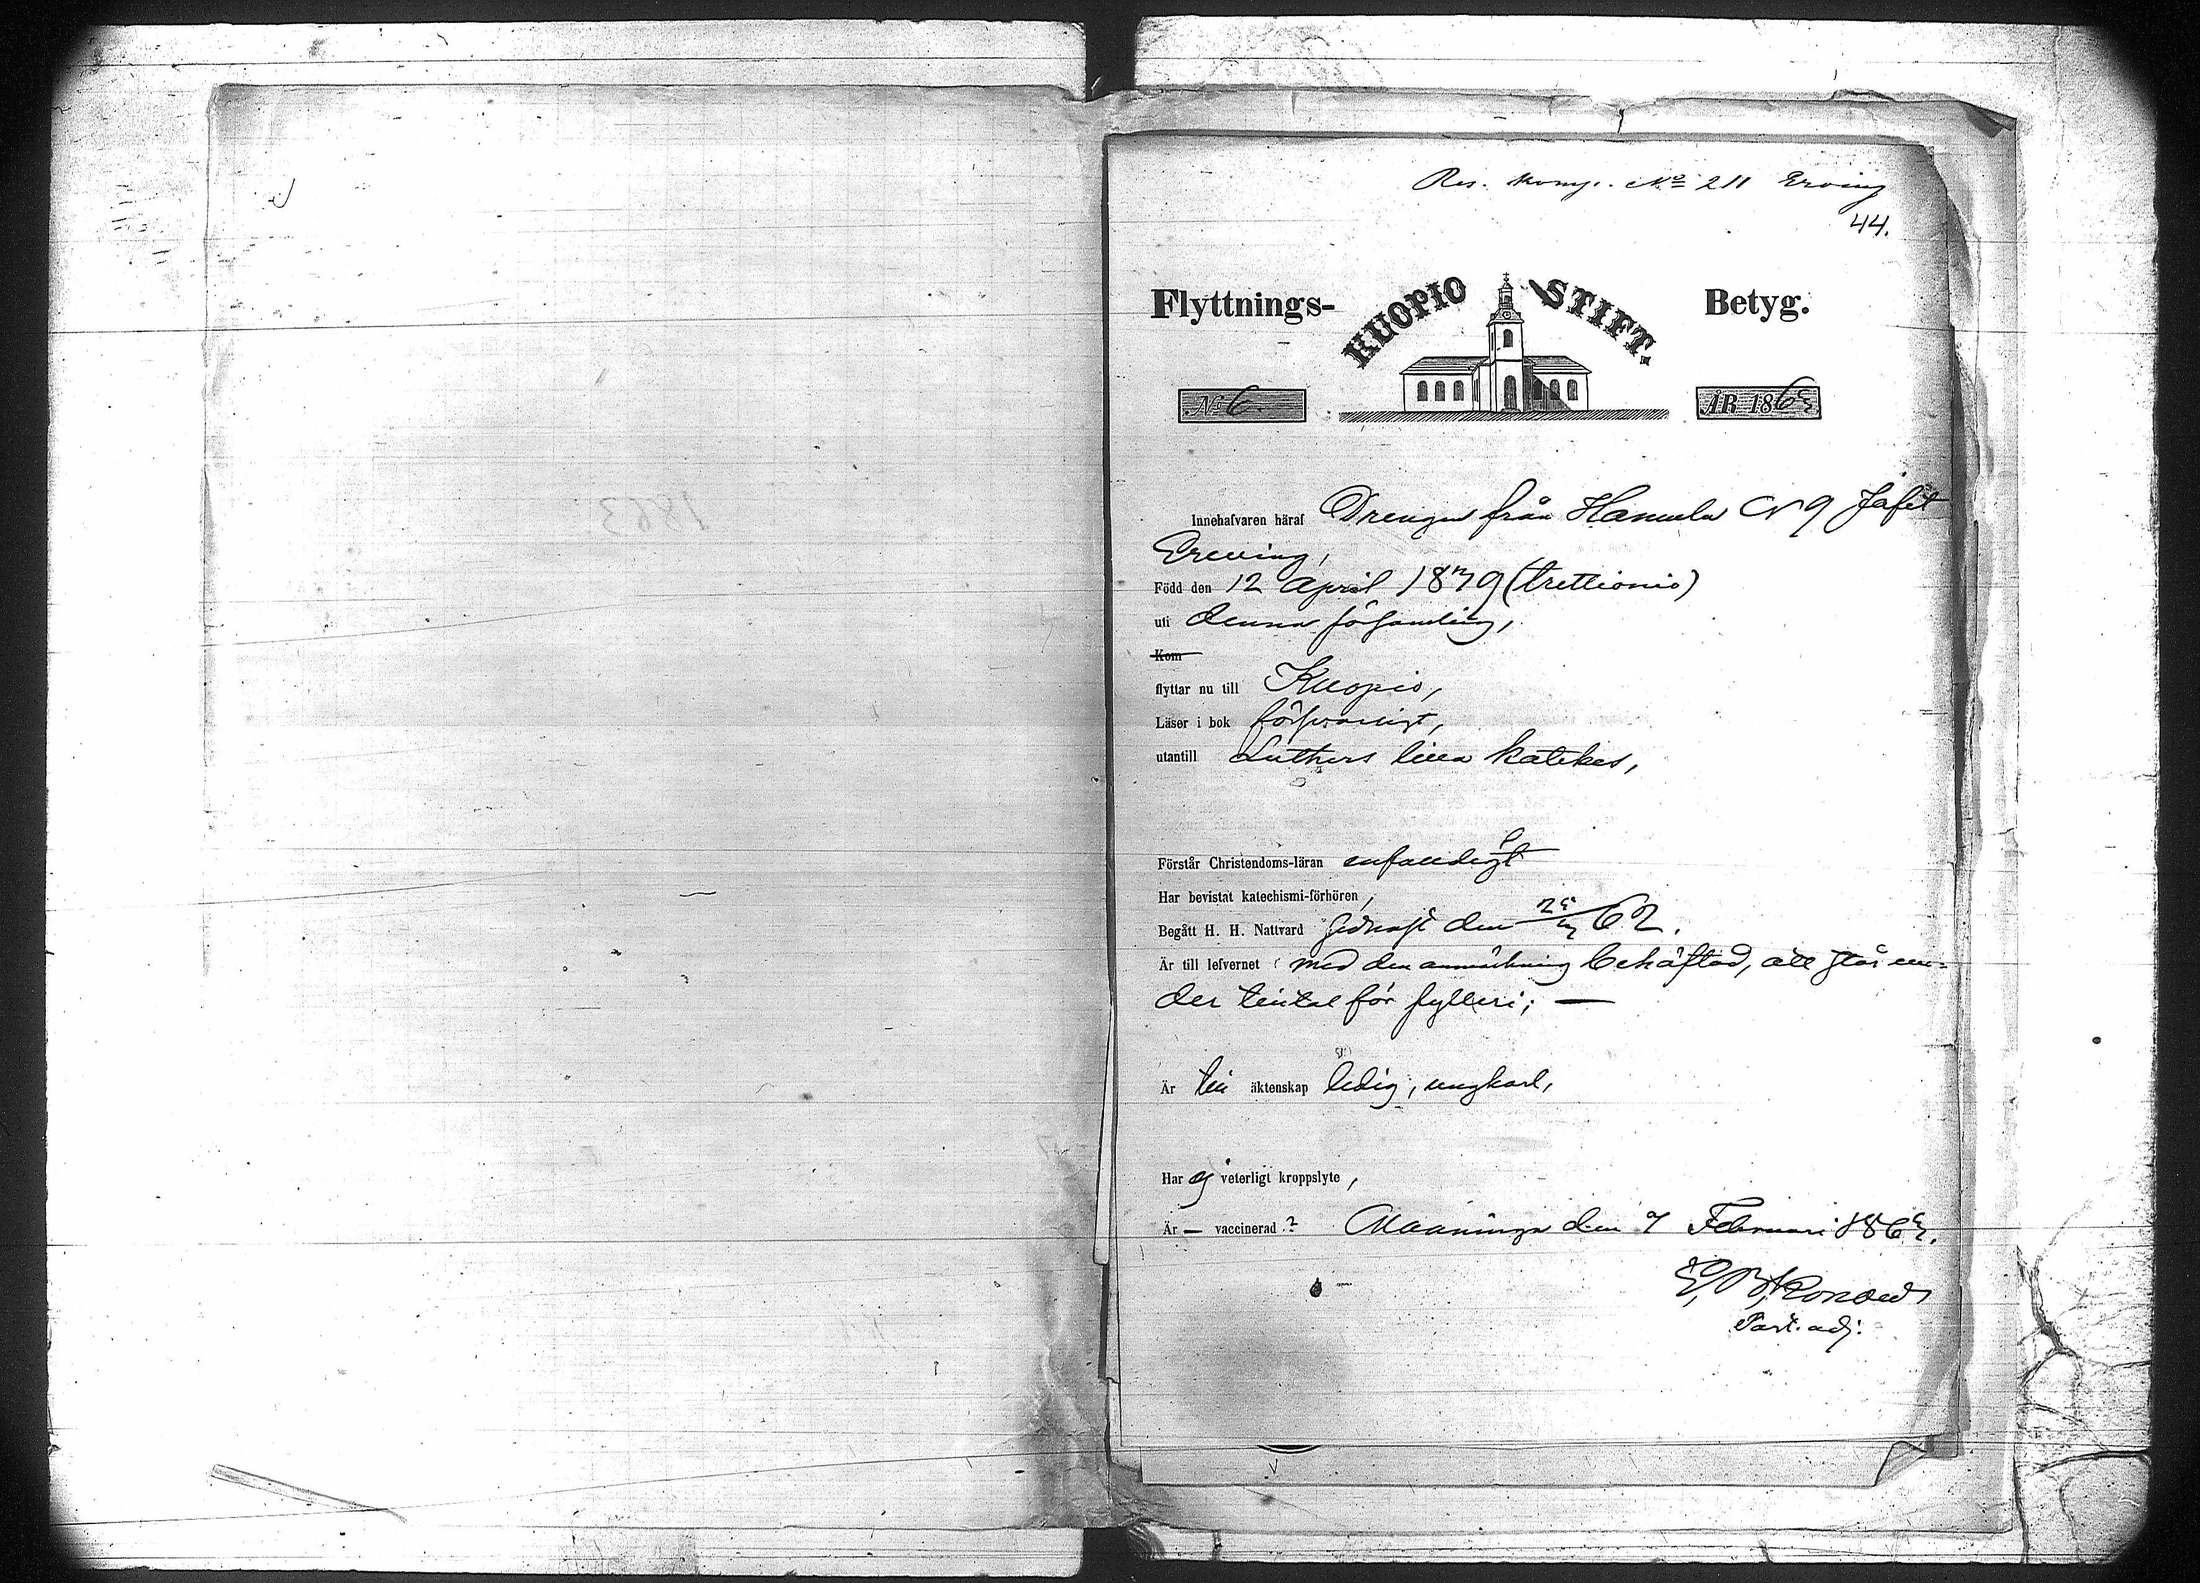 Res. komp. No 211 Erving
44.
Flyttnings- KUOPIO STIFT. Betyg.
No 6. ÅR 1863
1863
Innehafvaren häraf Drengen från Hamula N 9 Jafet
Ereving,
Född den 12 April 1839 (trettionio)
uti denna församling,
Kom
flyttar nu till Kuopio,
Läser i bok försvarligt,
utantill Luthers lilla katekes,
Förstår Christendoms-läran enfaldigt
Har bevistat katechismi-förhören,
Begått H. H. Nattvard sednast den 62.
Är till lefvernet med den anmärkning behäftad, att stå un=
der tilltal för fylleri; —
Är till äktenskap ledig, ungkarl,
Har ej veterligt kroppslyte,
Är — vaccinerad ? Maaninga den 7 Februari 1863.
Past. adj: